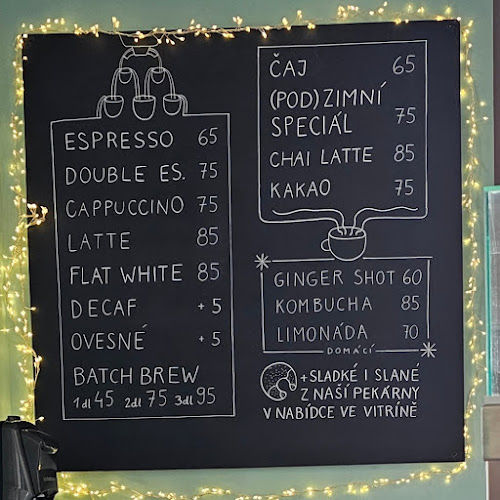 ESPRESSO 65
DOUBLE ES. 75
CAPPUCCINO 75
LATTE 85
FLAT WHITE 85
DECAF +5
OVESNÉ +5
BATCH BREW
1dl 45 2dl 75 3dl 95
ČAJ 65
(POD)ZIMNÍ
SPECIÁL 75
CHAI LATTE 85
KAKAO 75
GINGER SHOT 60
KOMBUCHA 85
LIMONÁDA 70
DOMÁCÍ
+SLADKÉ I SLANÉ
Z NAŠÍ PEKÁRNY
V NABÍDCE VE VITRÍNĚ